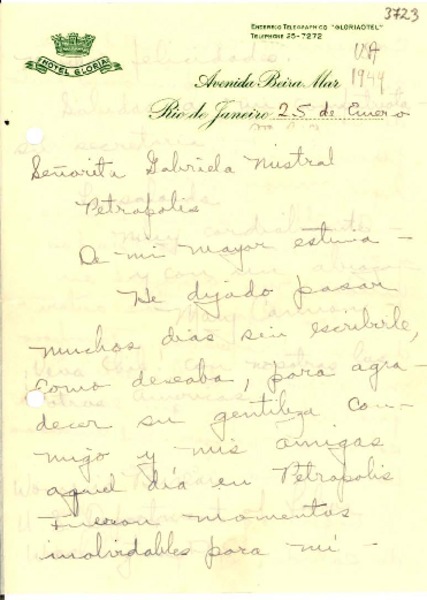 3723
ENDEREÇO TELEGRAPHICO "GLORIAOTEL"
TELEPHONE 25-7272
HOTEL GLORIA
USA
1944
Avenida Beira Mar
Rio de Janeiro 25 de Enero
Señorita Gabriela Mistral
Petropolis
De mi mayor estima -
He dejado pasar
muchos dias sin escribirle,
como deseaba, para agra-
decer su gentileza con-
migo y mis amigas
aquel día en Petropolis
Fueron momentos
inolvidables para mí -